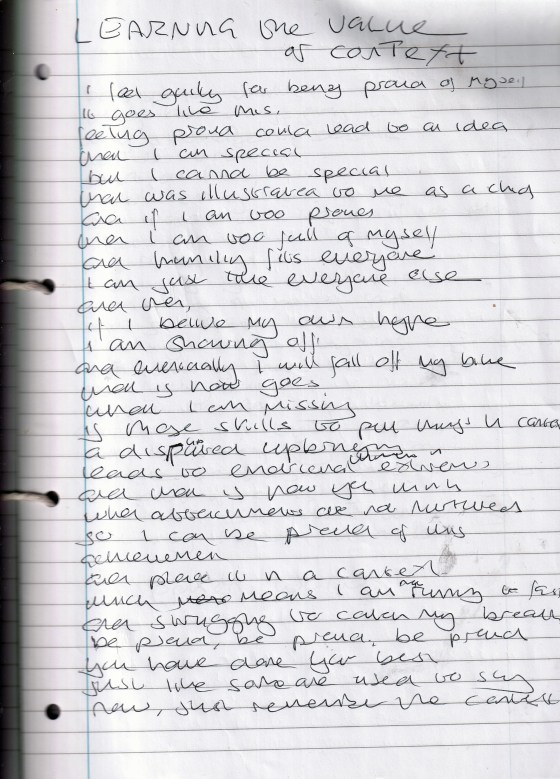 LEARNING the value
of context
I feel guilty for being proud of myself
it goes like this.
feeling proud could lead to an idea
that I am special
but I cannot be special
that was illustrated to me as a child
and if I am too proud
then I am too full of myself
and humility fits everyone
I am just like everyone else
and then,
if I believe my own hype
I am showing off
and eventually I will fall off my bike
that is how goes
what I am missing
is those skills to put things in context
a upbringing
leads to emotional extremes
and that is how you think
when attachments are not nurtured
so I can be proud of this
achievement
and place it in a context
which means I am not running to fast
and struggling to catch my breath
be proud, be proud, be proud
you have done your best
just like someone used to say
now, just remember the context